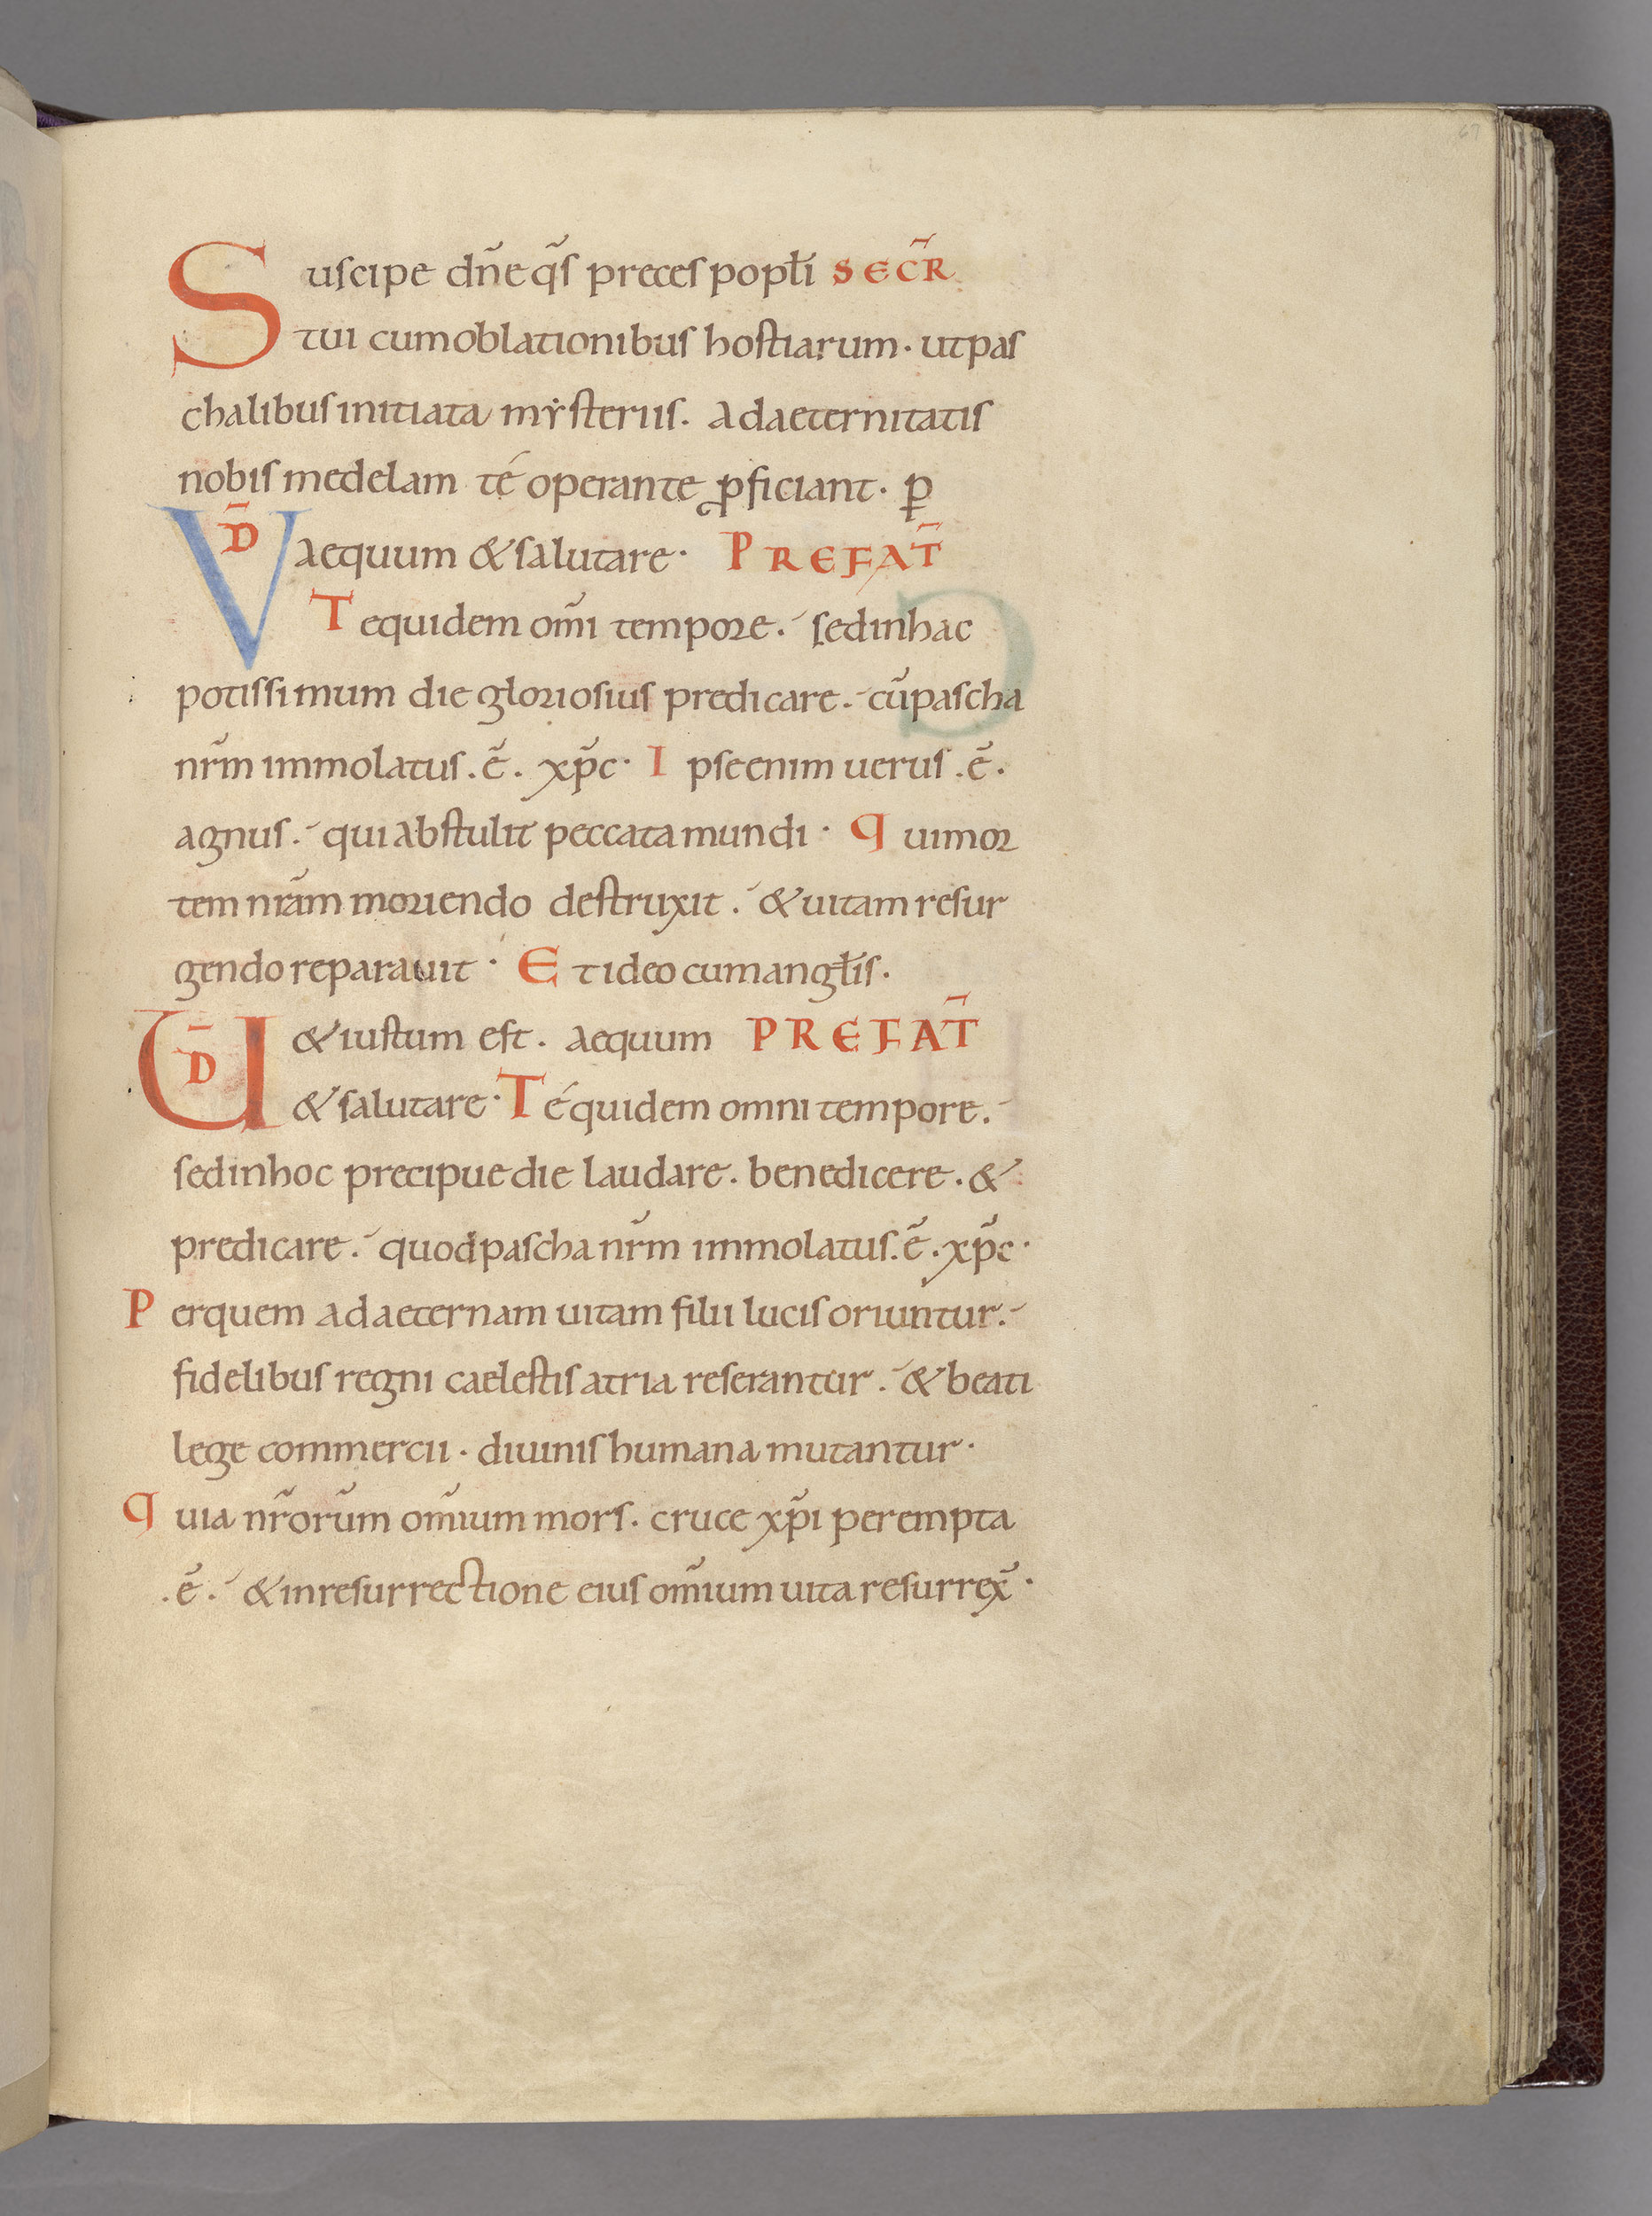 Suscipe dñe q̃s preces popłi SECR̃
tui cum oblationibus hostiarum · ut pas
chalibus initiata mẏsteriis. ad aeternitatis
nobis medelam té operante ꝓficiant · ꝑ
VD̄ aequum & salutare · PREFAT̃
Te quidem om̃i tempore. sed in hac
potissimum die gloriosius predicare. cũ pascha
nr̃m immolatus .ẽ. xp̃c · Ipse enim uerus .ẽ.
agnus. qui abstulit peccata mundi · Qui mor
tem nr̃am moriendo destruxit. & uitam resur
gendo reparauit · Et ideo cum angłis.
UD̄ & iustum est. aequum PREFAT̃
& salutare · Té quidem omni tempore.
sed in hoc precipue die laudare. benedicere. &
predicare. quod pascha nr̃m immolatus .ẽ. xp̃c ·
Per quem ad aeternam uitam filii lucis oriuntur.
fidelibus regni caelestis atria reserantur. & beati
lege commercii · diuinis humana mutantur ·
Quia nr̃orũm om̃ium mors. cruce xp̃i perempta
.ẽ. & in resurrectione eius om̃ium uita resurrex̃ ·
67